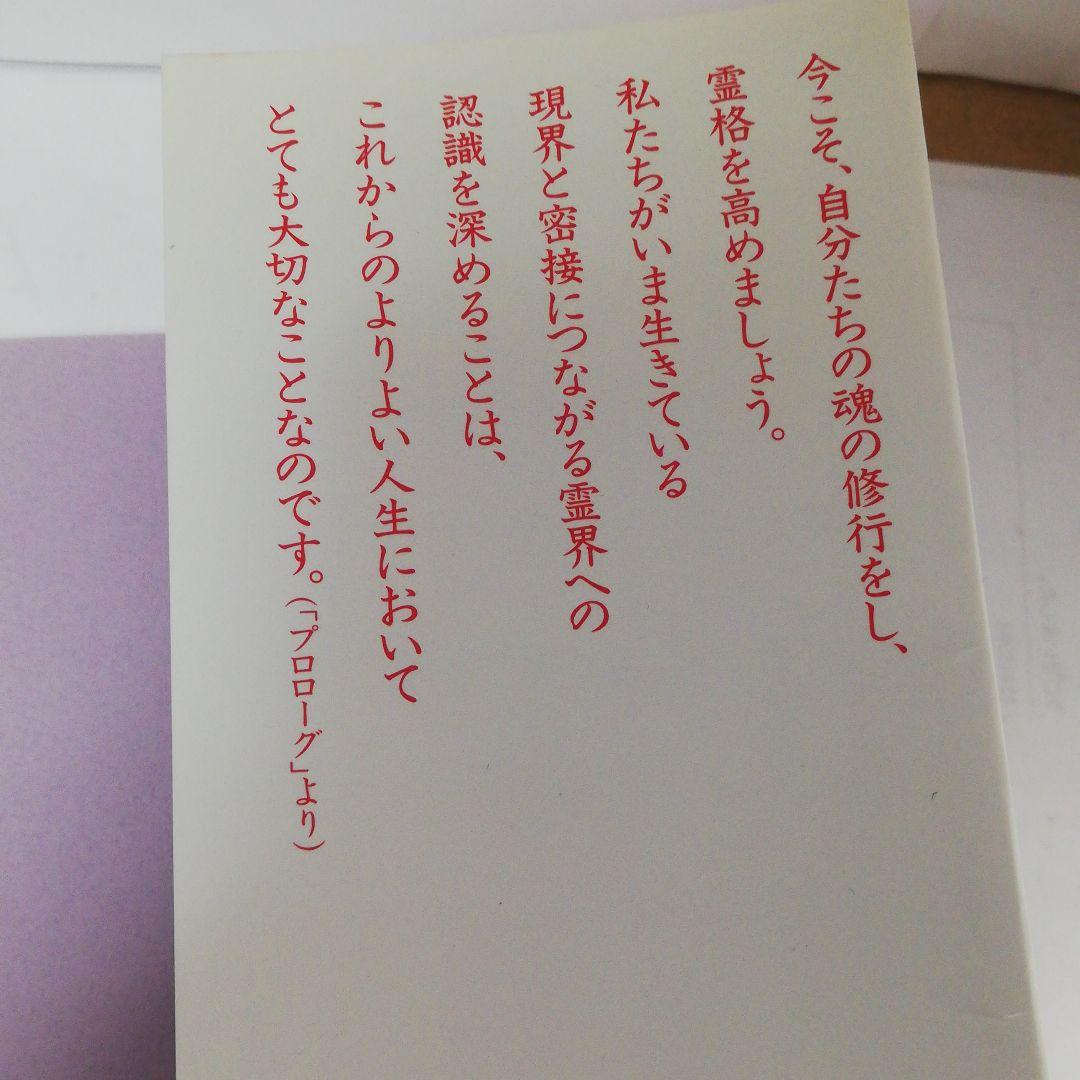 今こそ、自分たちの魂の修行をし、
霊格を高めましょう。
私たちがいま生きている
現界と密接につながる霊界への
認識を深めることは、
これからのよりよい人生において
とても大切なことなのです。(「プロローグ」より)